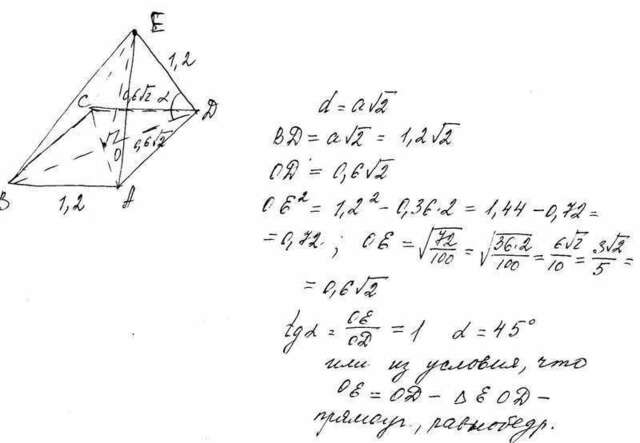 E
1,2
C
0,6√2
α
D
√2
O
0,6√2
B
1,2
A
d = a√2
BD = a√2 = 1,2√2
OD = 0,6√2
OE² = 1,2² - 0,36·2 = 1,44 - 0,72 =
= 0,72 ; OE = √72/100 = √36·2/100 = 6√2/10 = 3√2/5 =
= 0,6√2
tgα = OE/OD = 1 α = 45°
или из условия, что
OE = OD - Δ EOD -
прямоуг., равнобедр.